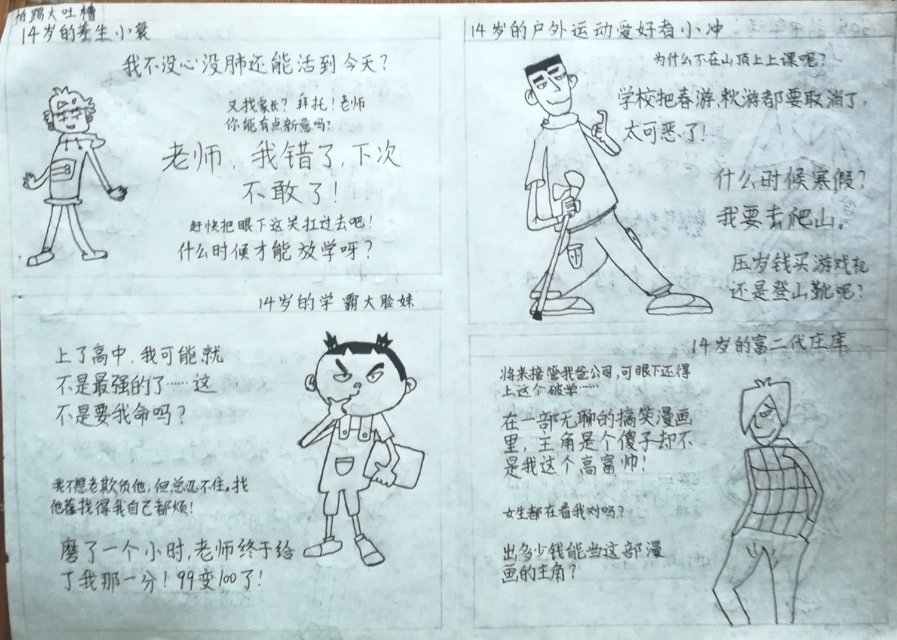 怕踢大吐槽
14岁的差生小衰
我不没心没肺还能活到今天？
又找家长？拜托！老师
你能有点新意吗？
老师，我错了，下次
不敢了！
赶快把眼下这关扛过去吧！
什么时候才能放学呀？
14岁的户外运动爱好者小冲
为什么不在山顶上上课呢？
学校把春游，秋游都要取消了，
太可恶了！
什么时候寒假？
我要去爬山。
压岁钱买游戏机
还是登山靴呢？
14岁的学霸大脸妹
上了高中，我可能就
不是最强的了……这
不是要我命吗？
我不想老欺负他，但总忍不住，找
他茬找得我自己都烦！
磨了一个小时，老师终于给
了我那一分！99变100了！
14岁的富二代庄库
将来接管我爸公司，可眼下还得
上这个破学……
在一部无聊的搞笑漫画
里，主角是个傻子却不
是我这个高富帅！
女生都在看我对吗？
出多少钱能当这部漫
画的主角？